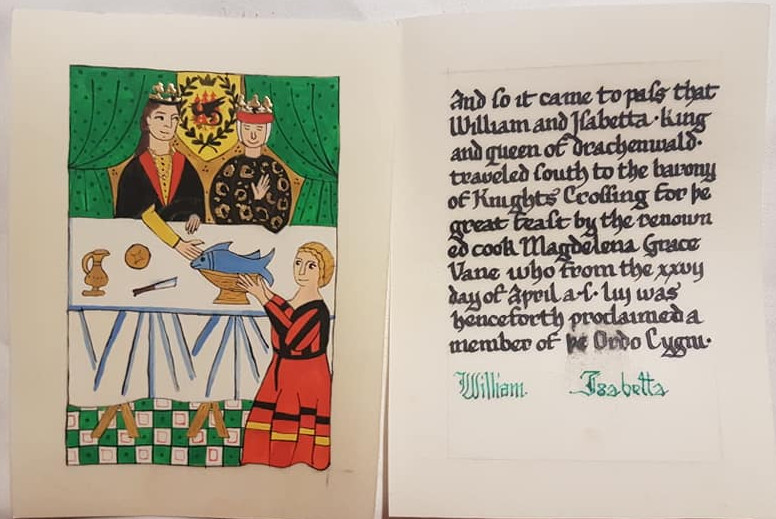 And so it came to pass that
William and Isabetta · King
and queen of drachenwald ·
traveled south to the barony
of Knights Crossing for þe
great feast by the renown
ed cook Magdelena Grace
Vane who from the xxvij
day of April a·s· liij was
henceforth proclaimed a
member of þe Ordo Cygni ·
William Isabetta